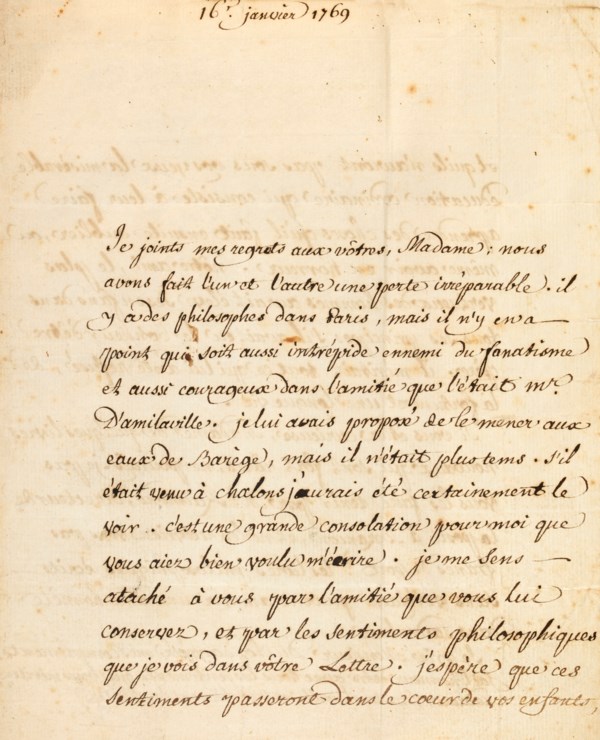 16r. janvier 1769
Je joints mes regrets aux vôtres, Madame; nous
avons fait l'un et l'autre une perte irréparable. il
y a des philosophes dans Paris, mais il n'y en a —
point qui soit aussi intrépide ennemi du fanatisme
et aussi courageux dans l'amitié que l'était mr.
D'amilaville. je lui avais proposé de le mener aux
eaux de Barège, mais il n'était plus tems. s'il
était venu à chalons j'aurais été certainement le
voir. c'est une grande consolation pour moi que
vous aiez bien voulu m'écrire. je me sens —
ataché à vous par l'amitié que vous lui
conservez, et par les sentiments philosophiques
que je vois dans vôtre Lettre. j'espère que ces
sentiments passeront dans le coeur de vos enfants,